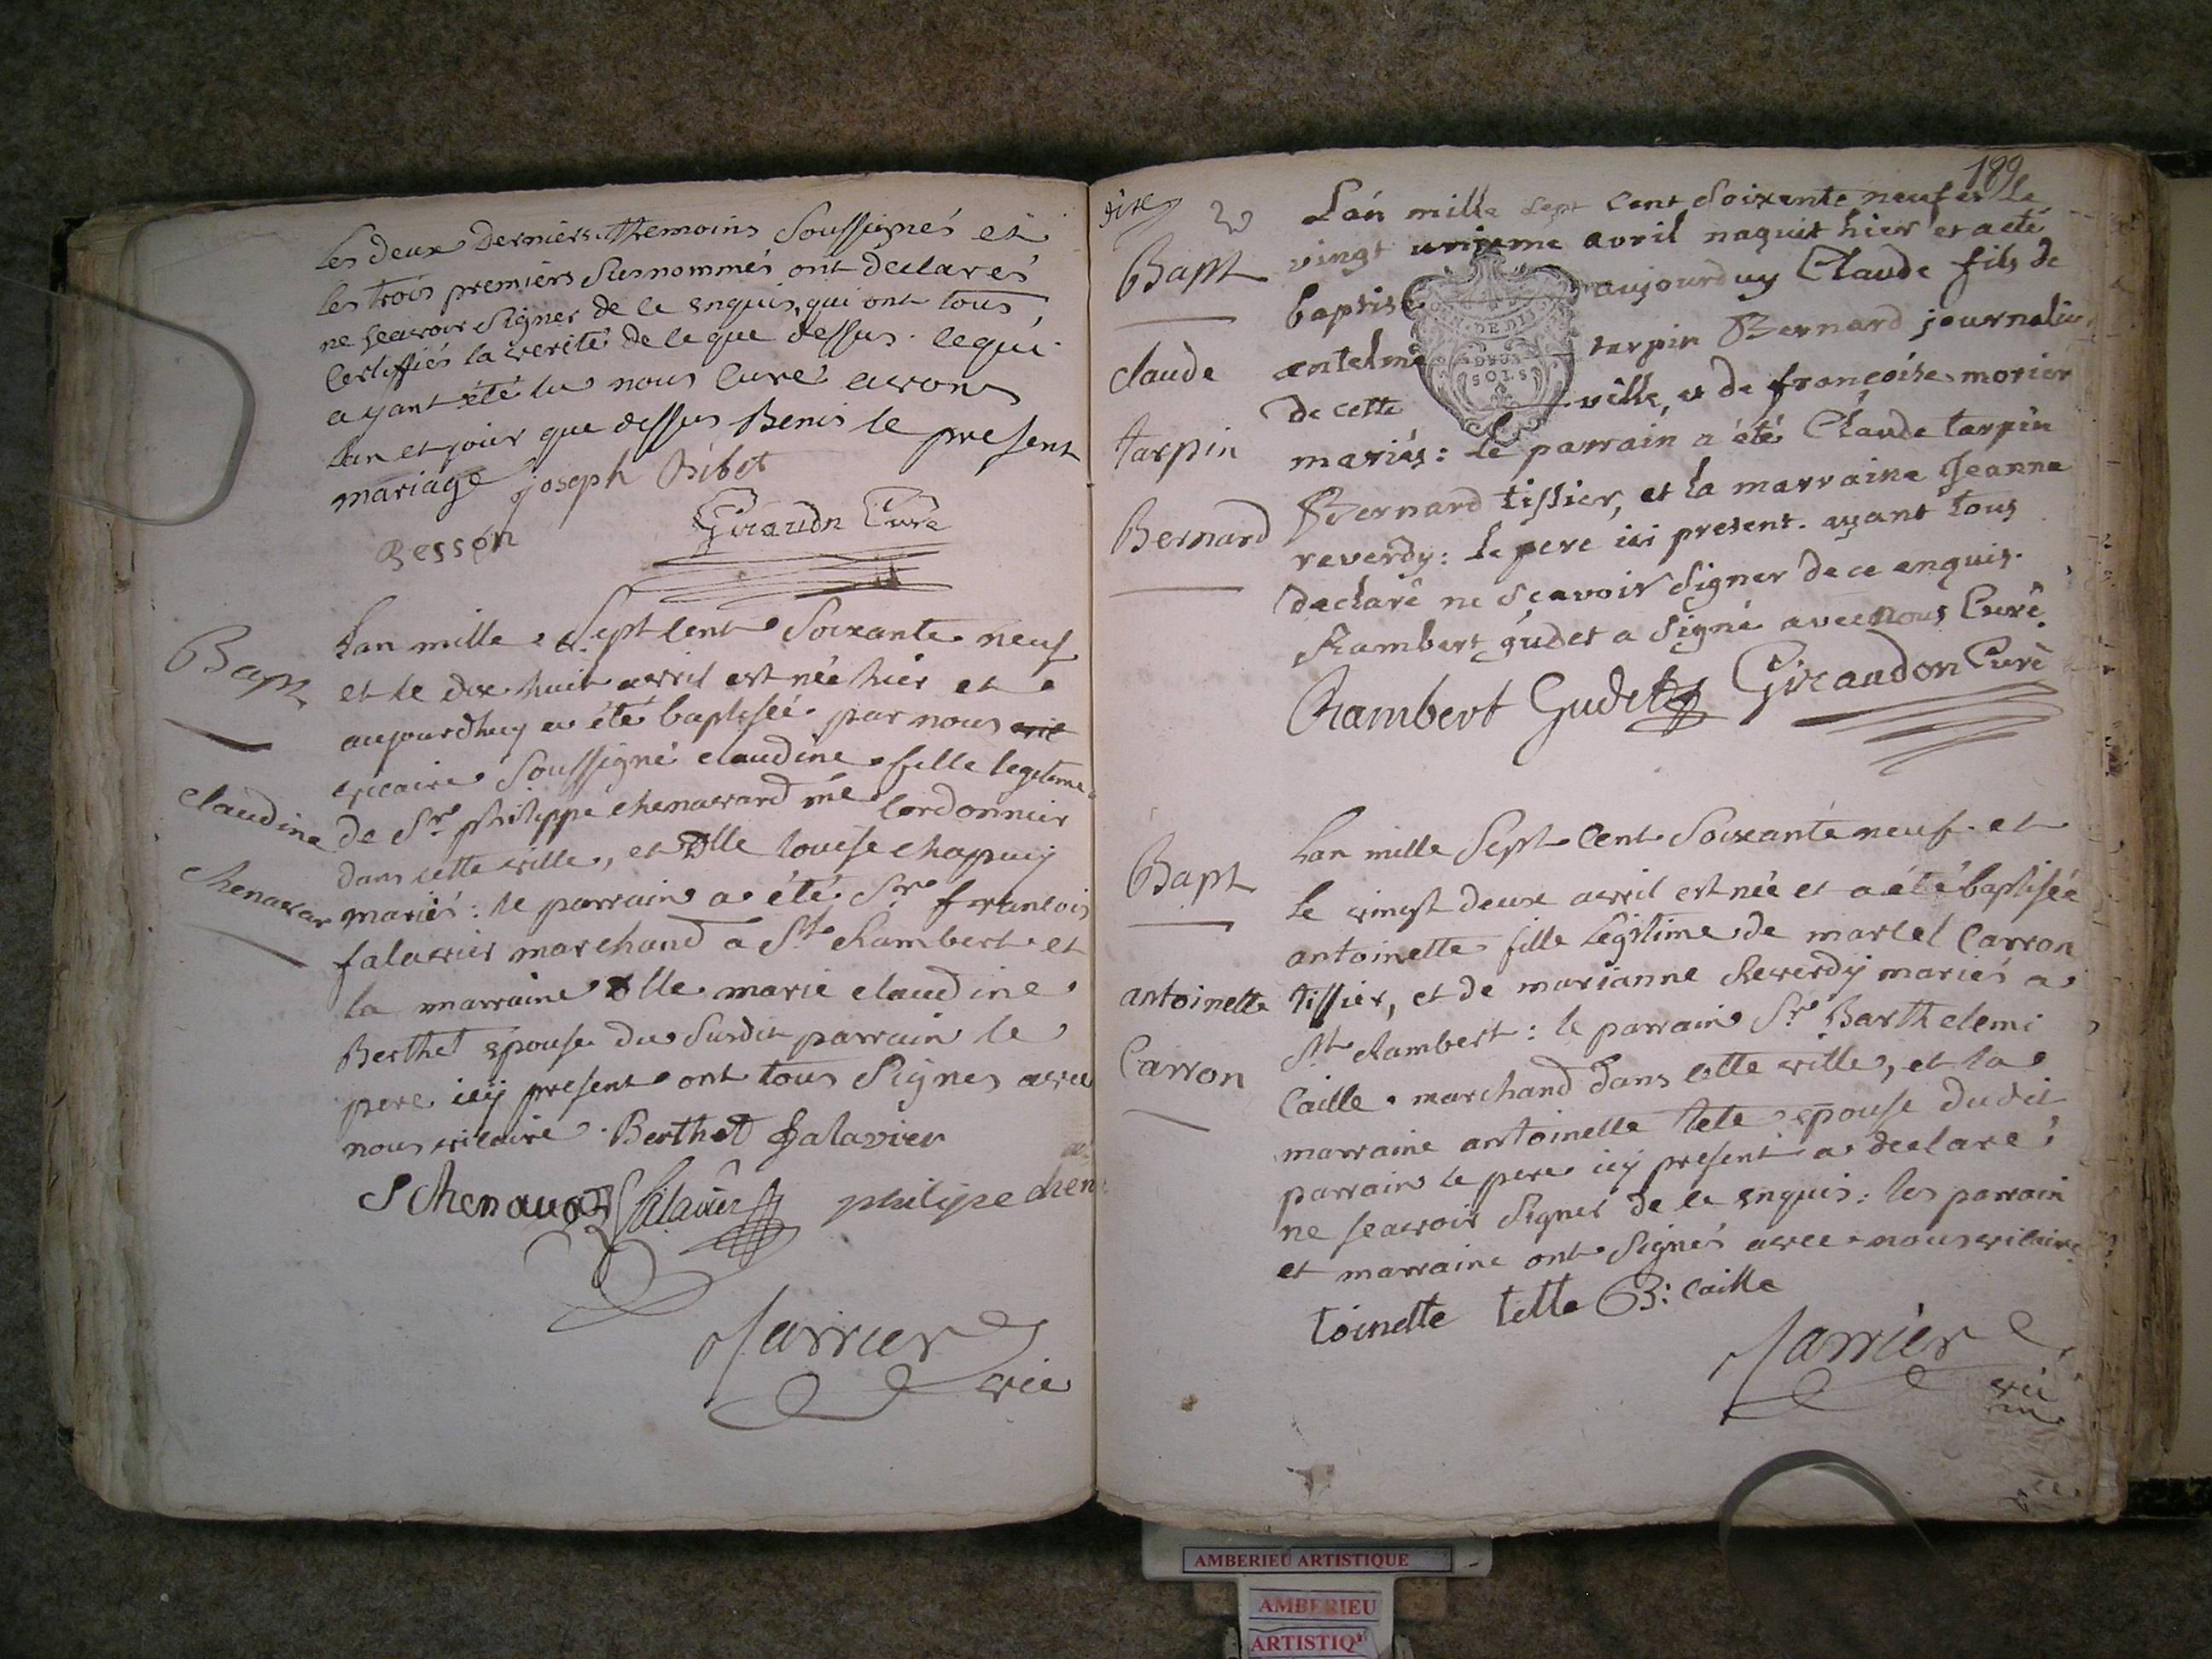 les deux derniers themoins soussignés et
les trois premiers susnommés ont declarés
ne sçavoir signer de ce enquis, qui ont tous
certiffiés la verité de ce que dessus. ce qui
ayant été lu nous curé avons
lan et jour que dessus Benis le present
mariage joseph Ribet
Besson Giraudn Curé
Bapt
Lan mille Sept cent Soixante neuf
et le dix huit avril est née hier et
aujourdhuy a été baptisée par nous
vicaire soussigné claudine fille legitime
claudine
de Sr philippe chenavard me Cordonnier
dans cette ville, et Dlle louise chapuy
chenavar
mariés: le parrain a été Sr francois
falavier marchand a St Rambert et
la marraine Dlle marie claudine
Berthet epouse du susdit parrain le
pere icy present ont tous Signés avec
nous vicaire. Berthet falavier
S Chenavar falavier philipe chen
Jarrier
vic
189
20
Bapt
Lan mille sept cent soixante neuf et le
vingt unieme avril naquit hier et a eté
baptisé aujourduy Claude fils de
claude
antelme tarpin Bernard journalier
de cette ville, et de françoise morier
tarpin
mariés: le parrain a été Claude tarpin
Bernard tissier, et la marraine Jeanne
Bernard
reverdy: le pere ici present. ayant tous
declaré ne sçavoir signer de ce enquis.
Rambert gudet a signé avec nous Curé.
Rambert Gudet Giraudon Curé
Bapt
Lan mille Sept Cent Soixante neuf et
le vingt deux avril est née et a été baptisée
antoinette fille legitime de marcel Carron
antoinette
tissier, et de marianne Reverdy mariés a
St Rambert: le parrain Sr Barthelemi
Carron
Caille marchand dans cette ville, et la
marraine antoinette tete epouse dudit
parrain le pere icy present a declaré
ne sçavoir signer de ce enquis: les parrain
et marraine ont signés avec nous vicaire
toinette tette B: Caille
Jarrier
vic
AMBERIEU ARTISTIQUE
AMBERIEU
ARTISTIQ